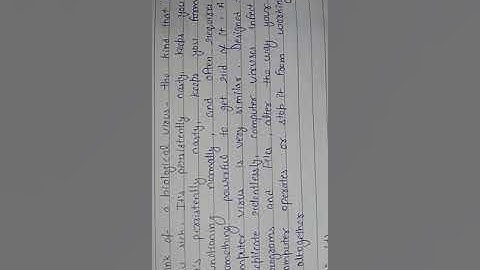 nk of a biological virus - the kind that
u sick. It's persistently nasty, keeps you
's persistently nasty, keeps you form
unctioning normally, and often requires
omething powerful to get rid of it. A
omputer virus is very similar. Designed
eplicate relentlessly, computer viruses infect
rograms and files, alter the way your
omputer operates or stop it form working
altogether